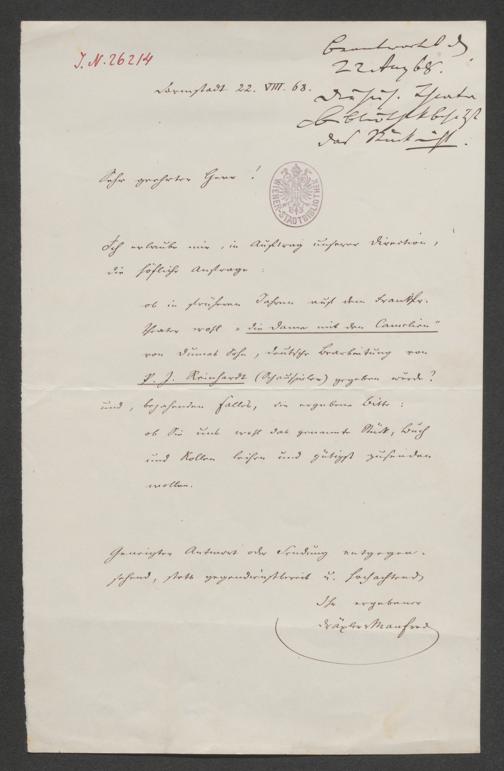 J. N. 26214
Beantwortet d
22 Aug 68.
Die hies. Theater
Bibliothek besitzt
das Stück nicht.
Darmstadt 22. VIII. 68.
Sehr geehrter Herr!
WIENER-STADTBIBLIOTHEK
Ich erlaube mir, im Auftrag unserer Direction,
die höfliche Anfrage:
ob in früheren Jahren auf dem Frankfr.
Theater wohl „die Dame mit den Camelien"
von Dumas Sohn, deutsche Bearbeitung von
P. J. Reinhardt (Schauspieler) gegeben wurde?
und, bejahenden Falles, die ergebene Bitte:
ob Sie uns wohl das genannte Stück, Buch
und Rollen leihen und gütigst zusenden
wollen.
Geneigter Antwort oder Sendung entgegen-
sehend, stets gegendienstbereit u. hochachtend
Ihr ergebener
Dräxler-Manfred